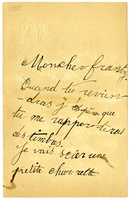 Mon cher Frantz
Quand tu revien-
dras j'espère que
tu me rapporteras
des timbres.
Je vais scier une
petite